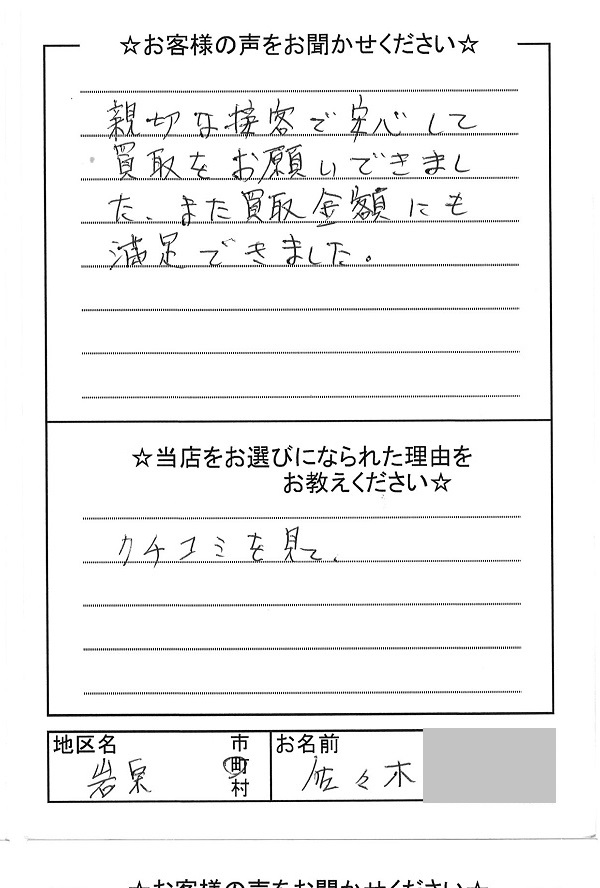 ☆お客様の声をお聞かせください☆
親切な接客で安心して
買取をお願いできまし
た、また買取金額にも
満足できました。
☆当店をお選びになられた理由を
お教えください☆
クチコミを見て、
地区名
岩泉
市
町
村
お名前
佐々木
☆お客様の声をお聞かせください☆